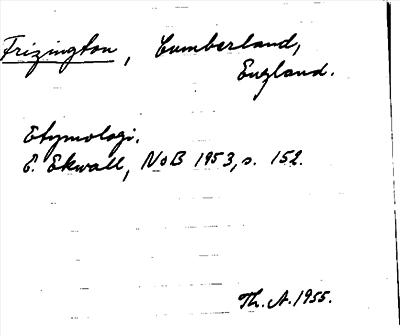 Frizington, Cumberland,
England.
Etymologi.
E. Ekwall, NoB 1953, s. 152.
Th. A. 1955.